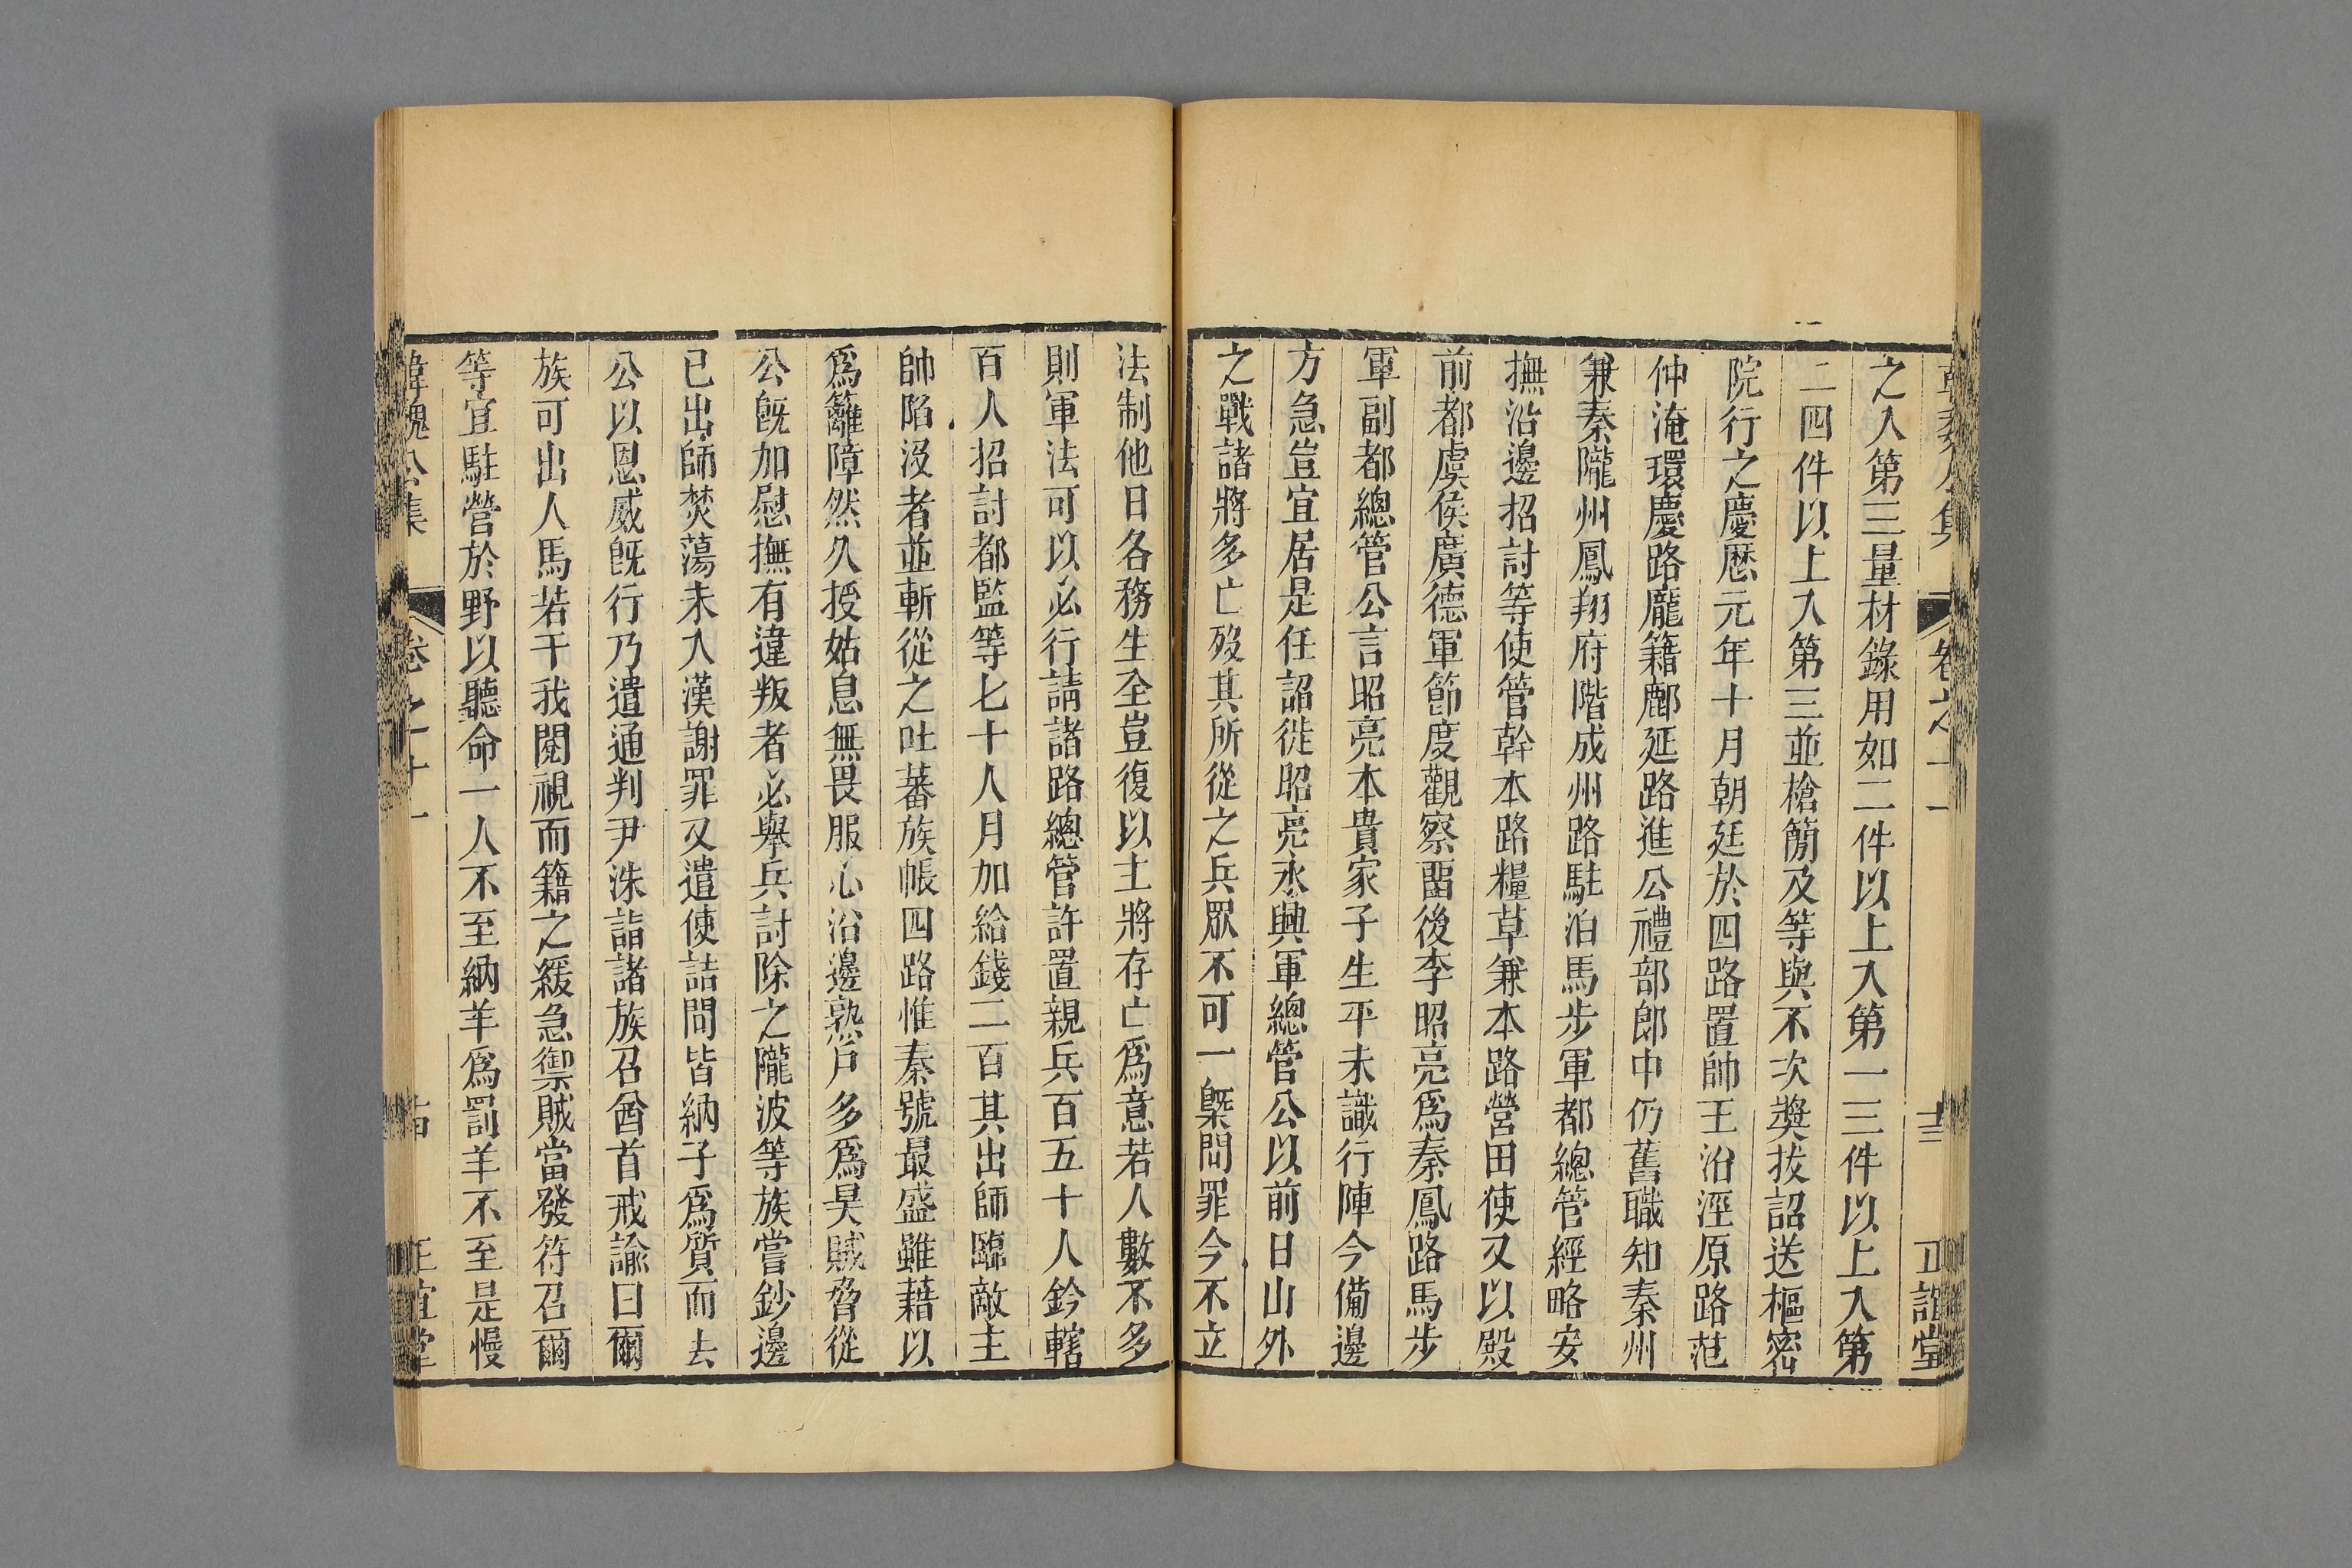 之入第三量材錄用如二件以上入第一三件以上入第
二四件以上入第三並槍簡及等與不次奬拔詔送樞密
院行之慶厯元年十月朝廷於四路置帥王沿涇原路范
仲淹環慶路龐籍鄜延路進公禮部郎中仍舊職知秦州
兼秦隴州鳳翔府階成州路駐泊馬步軍都總管經略安
撫沿邊招討等使管幹本路糧草兼本路營田使又以殿
前都虞侯廣德軍節度觀察畱後李昭亮爲秦鳳路馬步
軍副都總管公言昭亮本貴家子生平未識行陣今備邊
方急豈宜居是任詔徙昭亮永興軍總管公以前日山外
之戰諸將多亡歿其所從之兵眾不可一槩問罪今不立
法制他日各務生全豈復以主將存亡爲意若人數不多
則軍法可以必行請諸路總管許置親兵百五十人鈐轄
百人招討都監等七十人月加給錢二百其出師臨敵主
帥陷沒者並斬從之吐蕃族帳四路惟秦號最盛雖藉以
爲籬障然久授姑息無畏服心沿邊熟戶多爲昊賊脅從
公旣加慰撫有違叛者必舉兵討除之隴波等族嘗鈔邊
已出師焚蕩未入漢謝罪又遣使詰問皆納子爲質而去
公以恩威旣行乃遣通判尹洙詣諸族召酋首戒諭曰爾
族可出人馬若干我閱視而籍之緩急禦賊當發符召爾
等宜駐營於野以聽命一人不至納羊爲罰羊不至是慢
韓魏公集 卷之十一